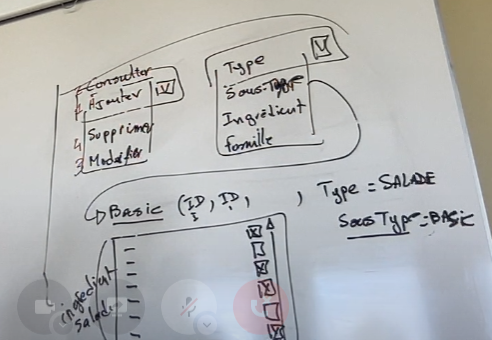 Consulter
Ajouter
Supprimer
Modifier
Type
Sous-Type
Ingrédient
famille
Basic (ID, ID, ), Type = SALADE
SousType = BASIC
ingredient
salade